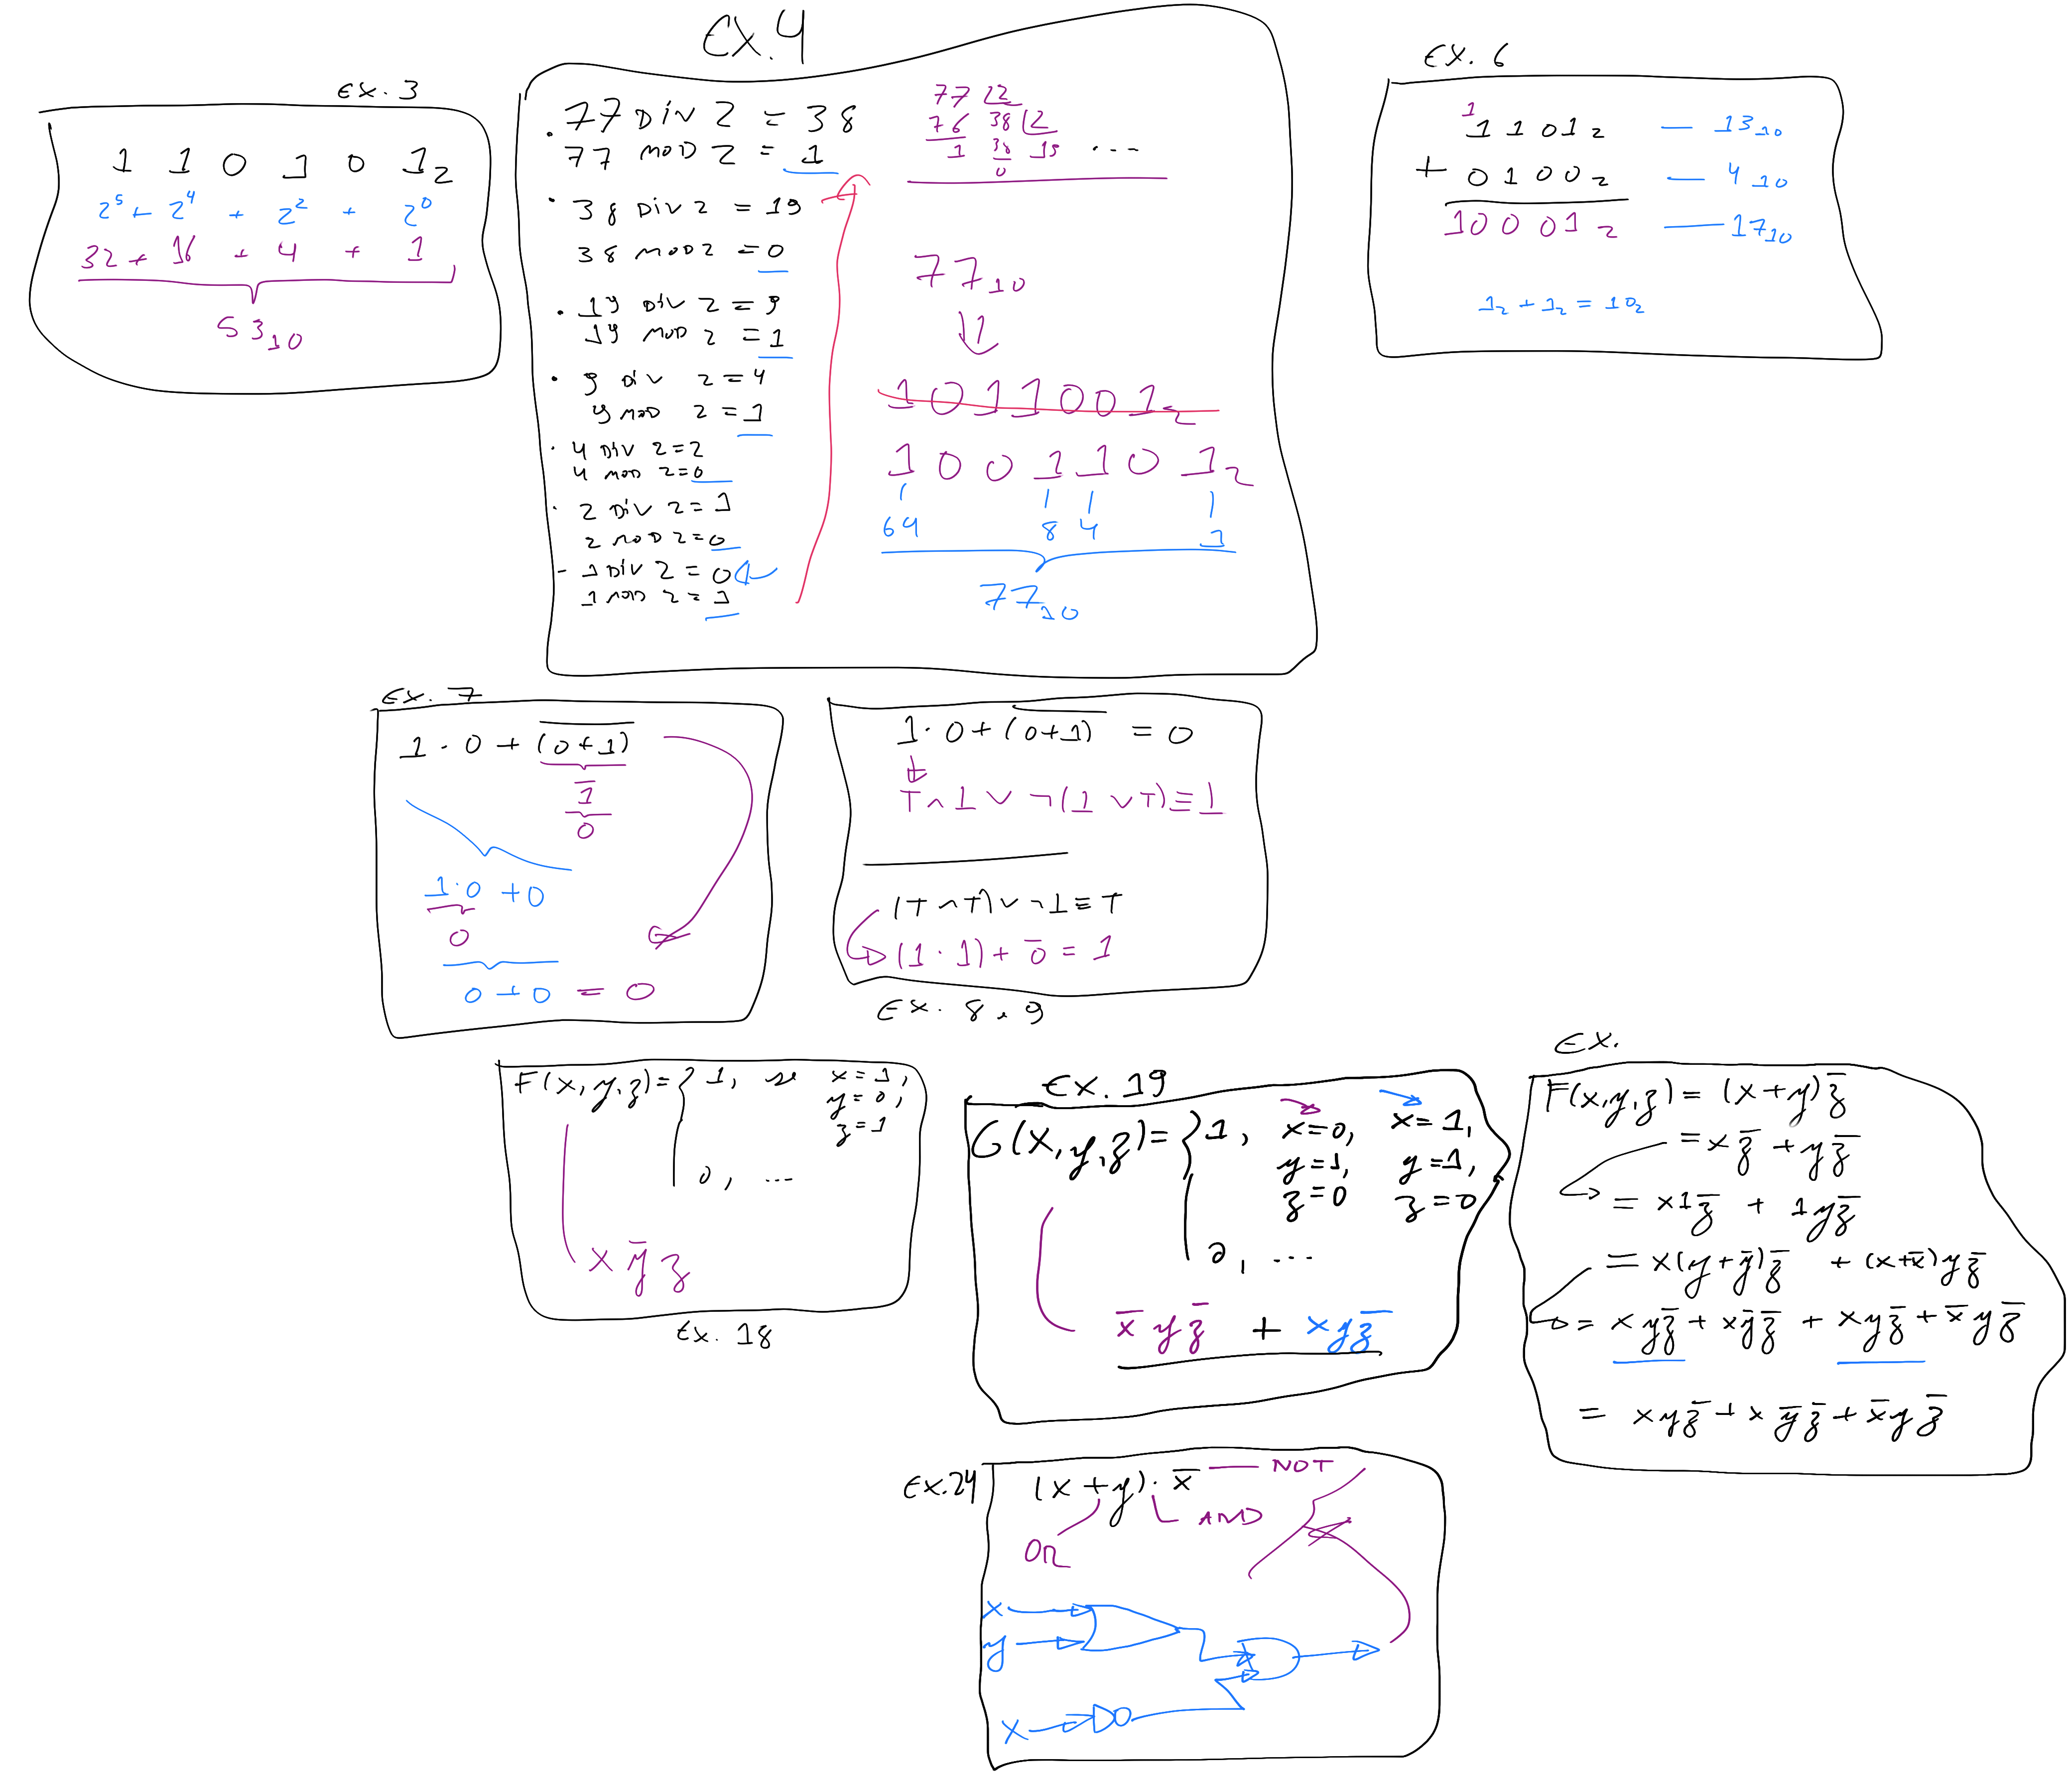 Ex. 3
1 1 0 1 0 1₂
2⁵ + 2⁴ + 2² + 2⁰
32 + 16 + 4 + 1
53₁₀
Ex. 4
77 Div 2 = 38
77 mod 2 = 1
38 Div 2 = 19
38 mod 2 = 0
19 Div 2 = 9
19 mod 2 = 1
9 Div 2 = 4
9 mod 2 = 1
4 Div 2 = 2
4 mod 2 = 0
2 Div 2 = 1
2 mod 2 = 0
1 Div 2 = 0
1 mod 2 = 1
77 2
76 38 2
1 38 19 ...
0
77₁₀
⇓
1011001₂
1001101₂
64 8 4 1
77₁₀
Ex. 6
1
1101₂ — 13₁₀
+ 0100₂ — 4₁₀
10001₂ — 17₁₀
1₂ + 1₂ = 10₂
Ex. 7
1 · 0 + \overline{(0+1)}
\overline{1}
0
1·0 + 0
0
0 + 0 = 0
1 · 0 + \overline{(0+1)} = 0
T ∧ ⊥ ∨ ¬(⊥ ∨ T) ≡ ⊥
(T ∧ T) ∨ ¬⊥ ≡ T
(1 · 1) + \overline{0} = 1
Ex. 8, 9
F(x, y, z) = { 1, se x = 1,
y = 0,
z = 1
0, ...
x \overline{y} z
Ex. 18
Ex. 19
G(x, y, z) = { 1, x = 0, x = 1,
y = 1, y = 1,
z = 0 z = 0
0, ...
\overline{x} y \overline{z} + x y \overline{z}
Ex.
F(x,y,z) = (x+y)\overline{z}
= x\overline{z} + y\overline{z}
= x1\overline{z} + 1y\overline{z}
= x(y+\overline{y})\overline{z} + (x+\overline{x})y\overline{z}
= xy\overline{z} + x\overline{y}\overline{z} + xy\overline{z} + \overline{x}y\overline{z}
= xy\overline{z} + x\overline{y}\overline{z} + \overline{x}y\overline{z}
Ex. 24
(x + y) · \overline{x} — NOT
AND
OR
x
y
x